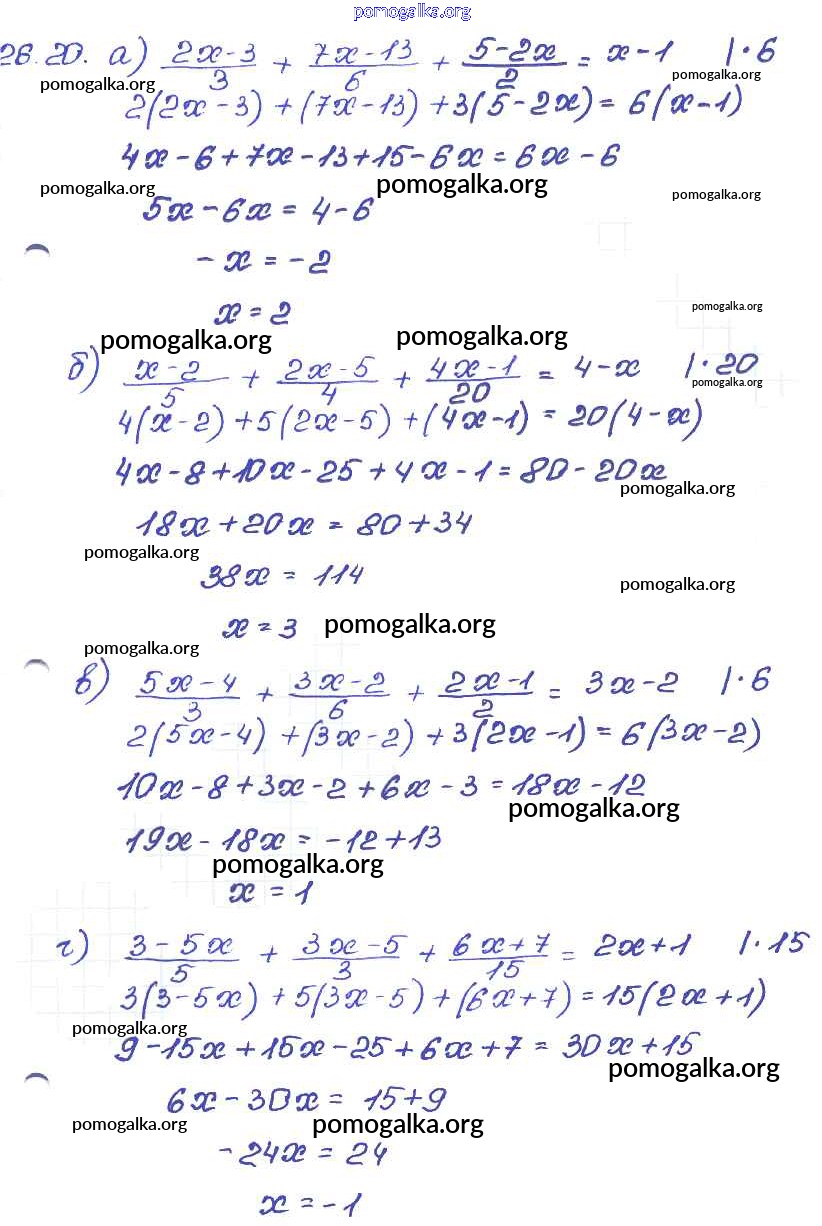 pomogalka.org
26.20. а) (2x-3)/3 + (7x-13)/6 + (5-2x)/2 = x-1 |·6
pomogalka.org pomogalka.org
2(2x-3)+(7x-13)+3(5-2x)=6(x-1)
4x-6+7x-13+15-6x=6x-6
pomogalka.org pomogalka.org pomogalka.org
5x-6x=4-6
-x=-2
pomogalka.org
x=2
pomogalka.org pomogalka.org
б) (x-2)/5 + (2x-5)/4 + (4x-1)/20 = 4-x |·20
pomogalka.org
4(x-2)+5(2x-5)+(4x-1)=20(4-x)
4x-8+10x-25+4x-1=80-20x
pomogalka.org
18x+20x=80+34
pomogalka.org
38x=114
pomogalka.org
x=3 pomogalka.org
pomogalka.org
в) (5x-4)/3 + (3x-2)/6 + (2x-1)/2 = 3x-2 |·6
2(5x-4)+(3x-2)+3(2x-1)=6(3x-2)
10x-8+3x-2+6x-3=18x-12
pomogalka.org
19x-18x=-12+13
pomogalka.org
x=1
г) (3-5x)/5 + (3x-5)/3 + (6x+7)/15 = 2x+1 |·15
3(3-5x)+5(3x-5)+(6x+7)=15(2x+1)
pomogalka.org
9-15x+15x-25+6x+7=30x+15
pomogalka.org
6x-30x=15+9
pomogalka.org pomogalka.org
-24x=24
x=-1